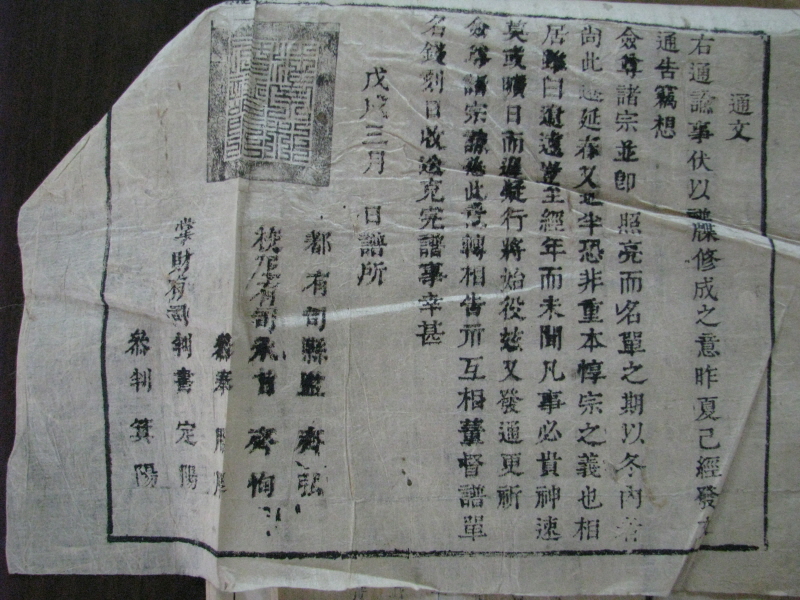 通文
右通諭事伏以譜牒修成之意昨夏已經發
通告竊想
僉尊諸宗並卽 照亮而名單之期以冬內
尙此遷延春又過半恐非重本惇宗之義也相
居雖曰 遠豈至經年而未聞凡事必貴神速
莫或曠日而遲疑行將始役玆又發通更祈
僉尊諸宗 此 轉相告示互相董督譜單
名錢刻日收送克完譜事幸甚
戊戌三月 日譜所
都有司縣監 齊
校正有司承旨 齊恂
參奉
掌財有司判書 定陽
參判 箕陽